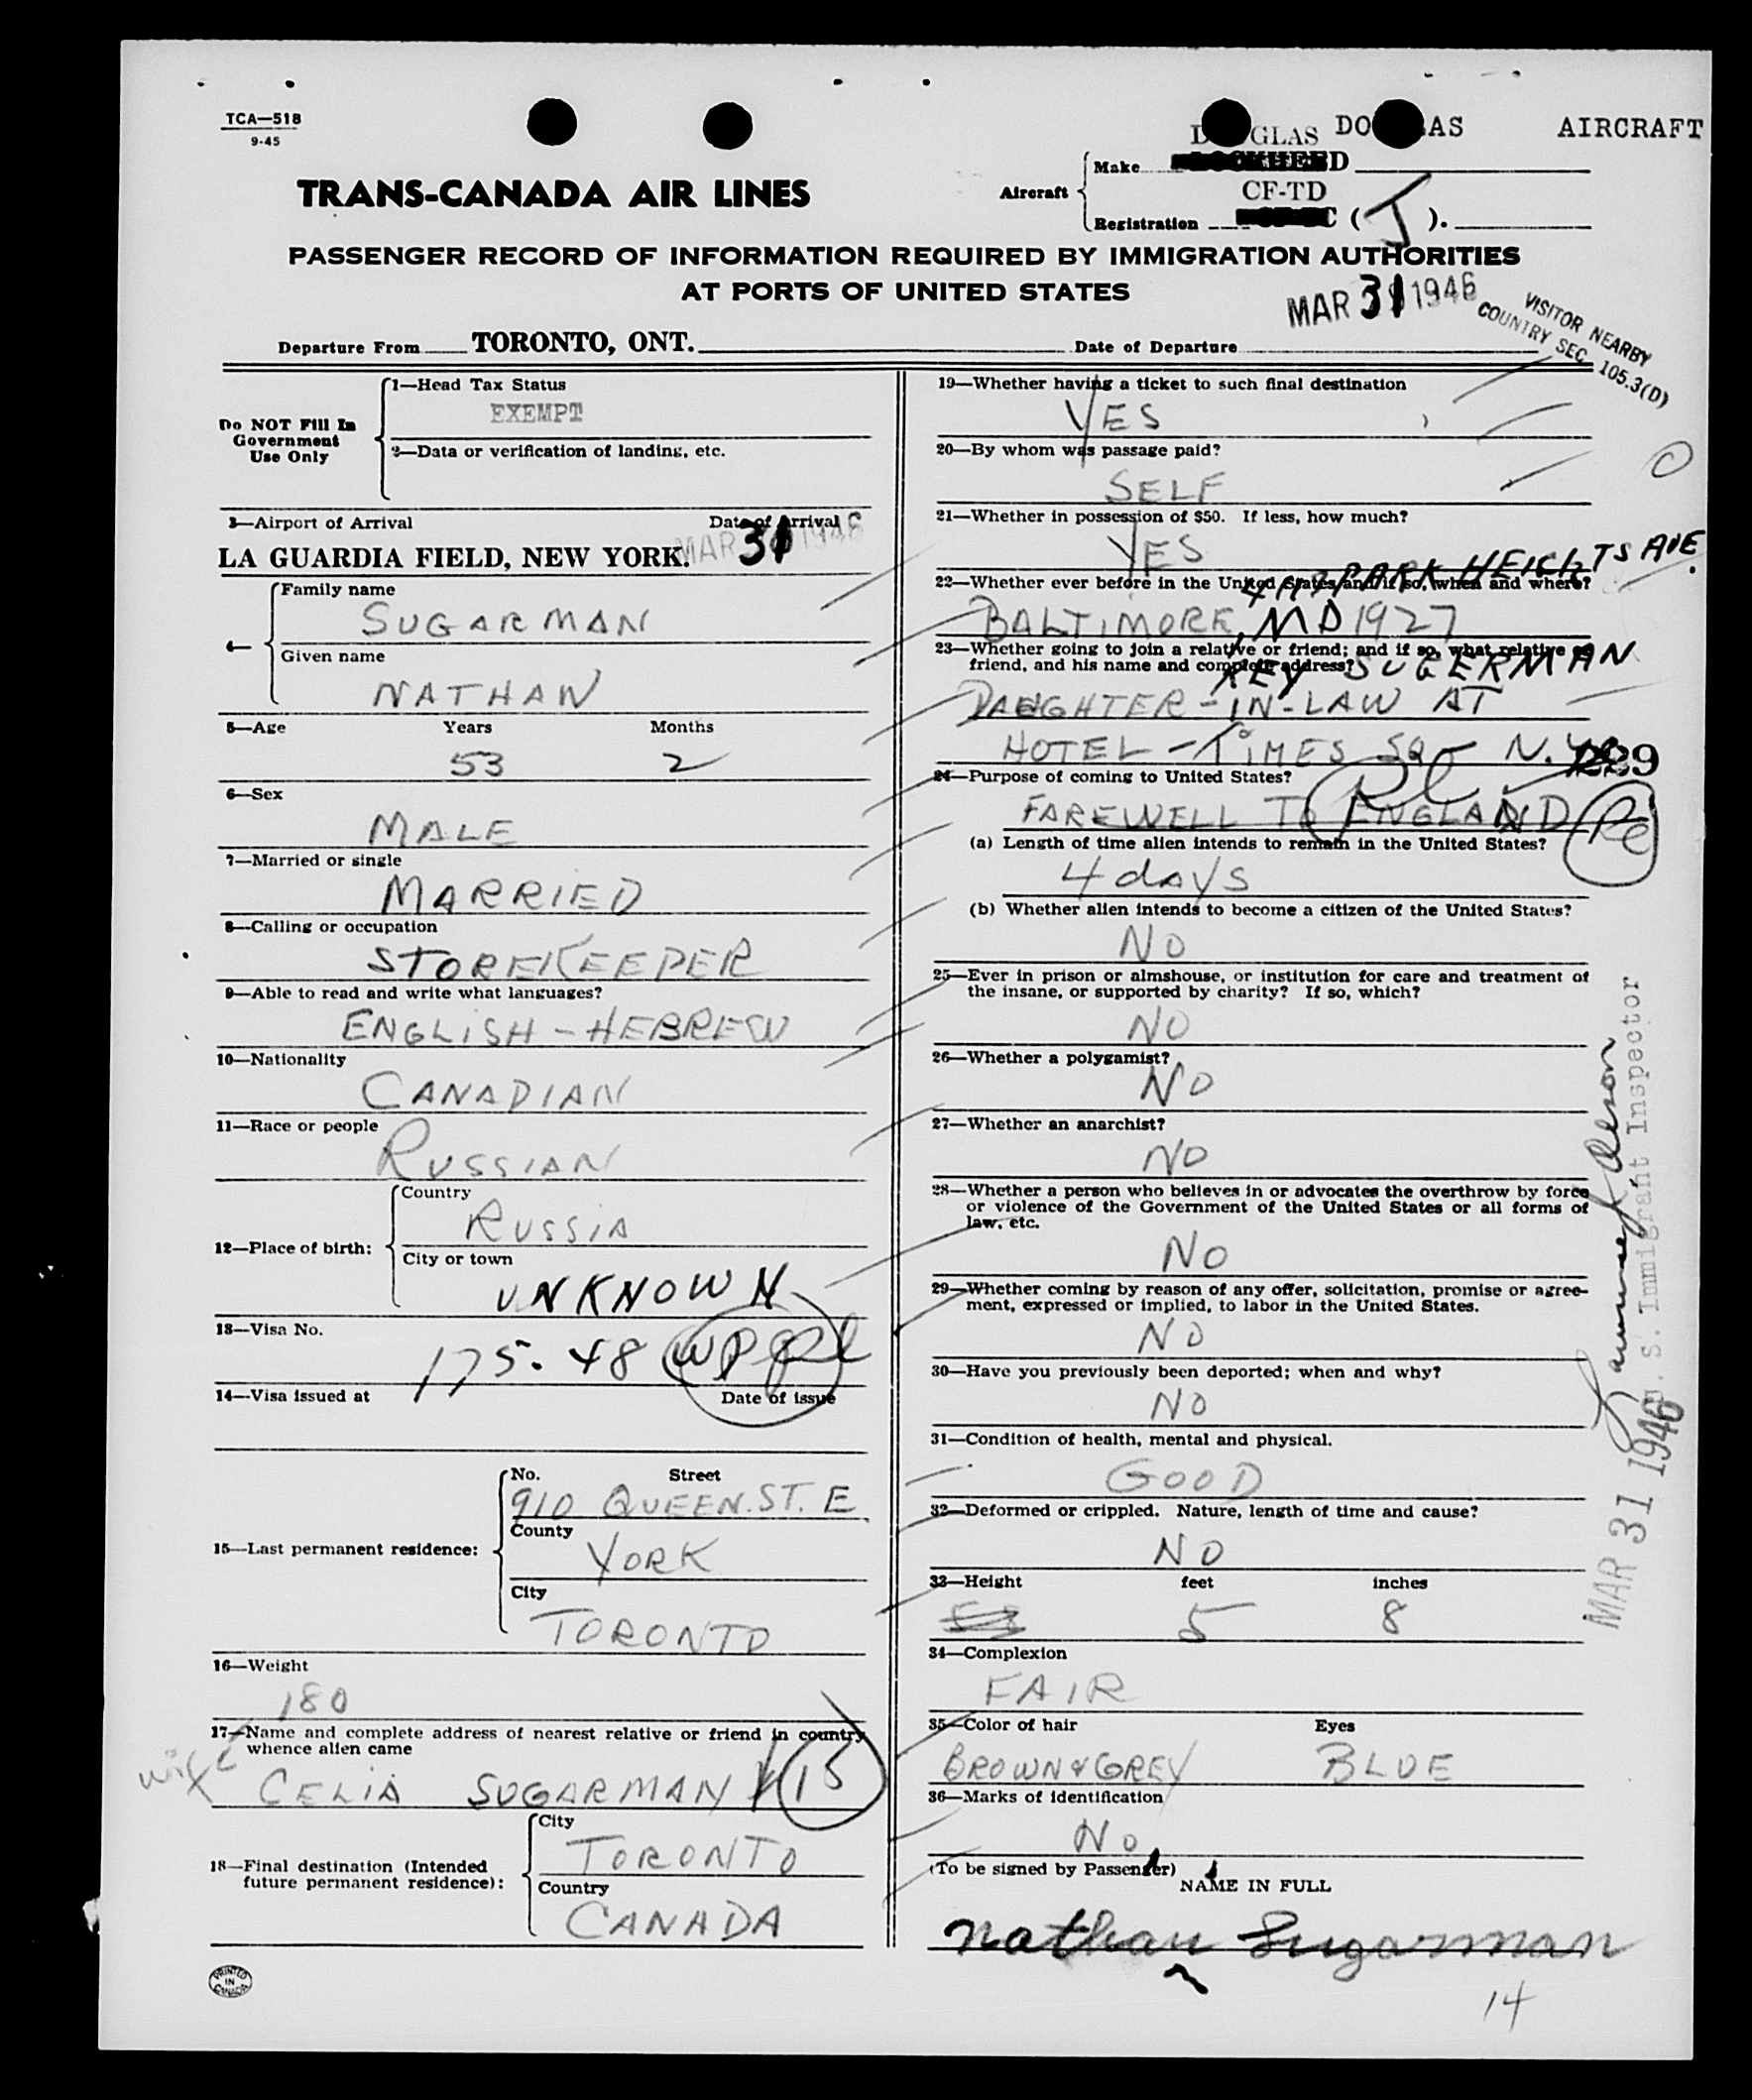 TCA—518
9-45
DOUGLAS AIRCRAFT
TRANS-CANADA AIR LINES
Aircraft
Make
Registration
CF-TD
(J).
PASSENGER RECORD OF INFORMATION REQUIRED BY IMMIGRATION AUTHORITIES
AT PORTS OF UNITED STATES
MAR 31 1946
VISITOR NEARBY
COUNTRY SEC. 105.3(D)
Departure From TORONTO, ONT. Date of Departure
Do NOT Fill In
Government
Use Only
1—Head Tax Status
EXEMPT
2—Data or verification of landing, etc.
3—Airport of Arrival Date of Arrival
LA GUARDIA FIELD, NEW YORK. MAR 31 1946
4—
Family name
SUGARMAN
Given name
NATHAN
5—Age Years Months
53 2
6—Sex
MALE
7—Married or single
MARRIED
8—Calling or occupation
STOREKEEPER
9—Able to read and write what languages?
ENGLISH - HEBREW
10—Nationality
CANADIAN
11—Race or people
RUSSIAN
12—Place of birth:
Country
RUSSIA
City or town
UNKNOWN
13—Visa No.
175.48
14—Visa issued at Date of issue
15—Last permanent residence:
No. Street
910 QUEEN. ST. E
County
YORK
City
TORONTO
16—Weight
180
17—Name and complete address of nearest relative or friend in country
whence alien came
wife CELIA SUGARMAN 15
18—Final destination (Intended
future permanent residence):
City
TORONTO
Country
CANADA
PRINTED
IN
CANADA
19—Whether having a ticket to such final destination
YES
20—By whom was passage paid?
SELF
21—Whether in possession of $50. If less, how much?
YES
PARK HEIGHTS AVE.
22—Whether ever before in the United States and if so, when and where?
BALTIMORE, MD 1927
23—Whether going to join a relative or friend; and if so, what relative or
friend, and his name and complete address?
SUGERMAN
DAUGHTER-IN-LAW AT
HOTEL - TIMES SQ - N.Y.
24—Purpose of coming to United States?
FAREWELL TO ENGLAND
(a) Length of time alien intends to remain in the United States?
4 days
(b) Whether alien intends to become a citizen of the United States?
NO
25—Ever in prison or almshouse, or institution for care and treatment of
the insane, or supported by charity? If so, which?
NO
26—Whether a polygamist?
NO
27—Whether an anarchist?
NO
28—Whether a person who believes in or advocates the overthrow by force
or violence of the Government of the United States or all forms of
law, etc.
NO
29—Whether coming by reason of any offer, solicitation, promise or agree-
ment, expressed or implied, to labor in the United States.
NO
30—Have you previously been deported; when and why?
NO
31—Condition of health, mental and physical.
GOOD
32—Deformed or crippled. Nature, length of time and cause?
NO
33—Height feet inches
5 8
34—Complexion
FAIR
35—Color of hair Eyes
BROWN & GREY BLUE
36—Marks of identification
No
(To be signed by Passenger)
NAME IN FULL
Nathan Sugarman
14
U. S. Immigrant Inspector
MAR 31 1946